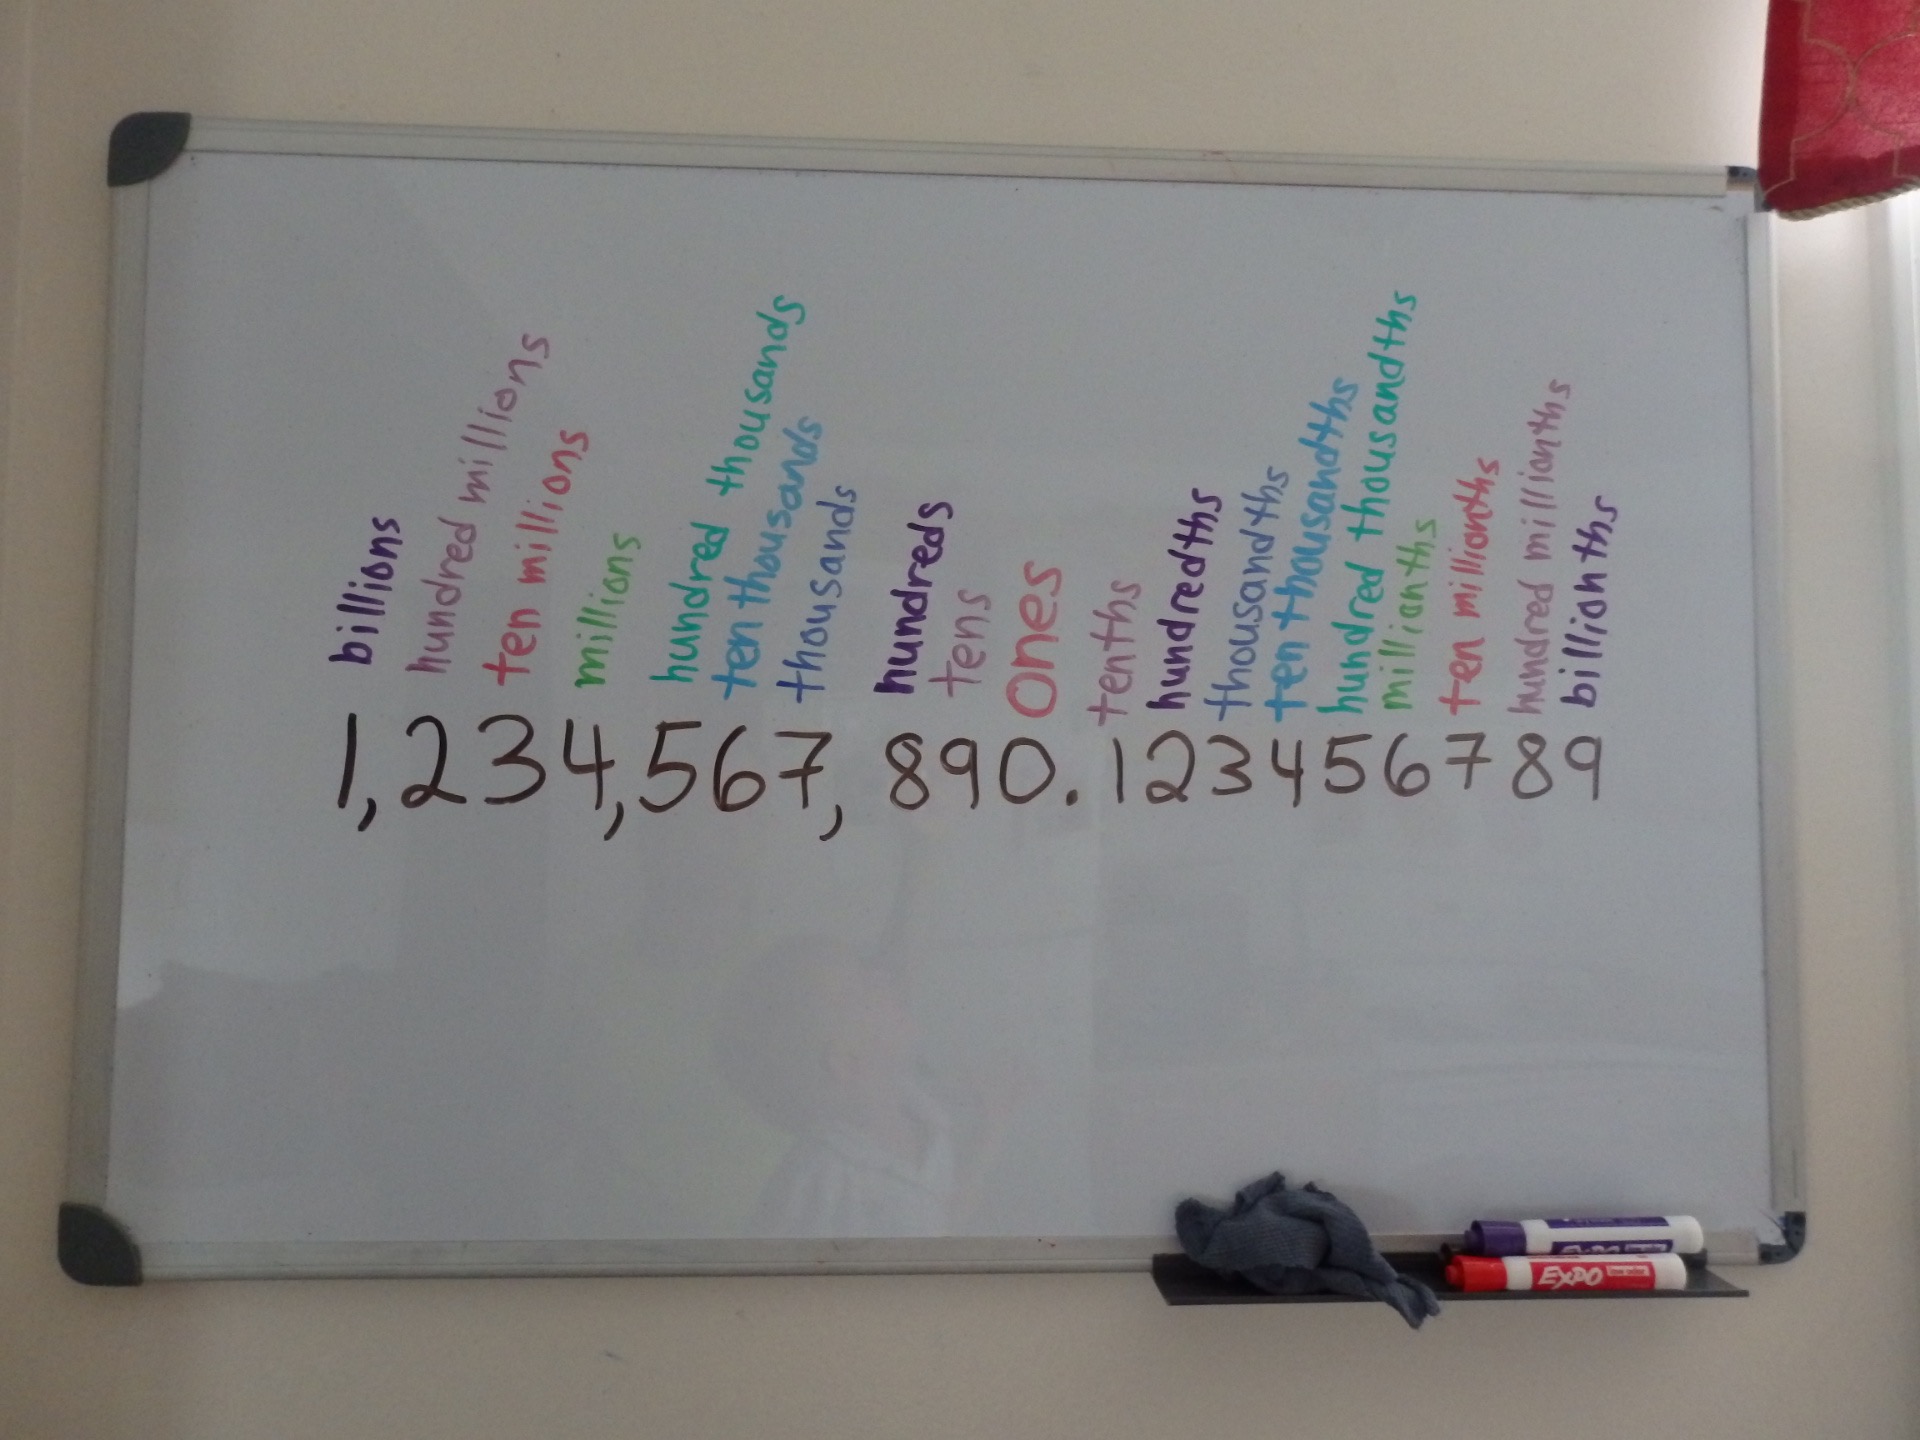 billions
hundred millions
ten millions
millions
hundred thousands
ten thousands
thousands
hundreds
tens
Ones
tenths
hundredths
thousandths
ten thousandths
hundred thousandths
millionths
ten millionths
hundred millionths
billionths
1,234,567,890.123456789
EXPO
EXPO